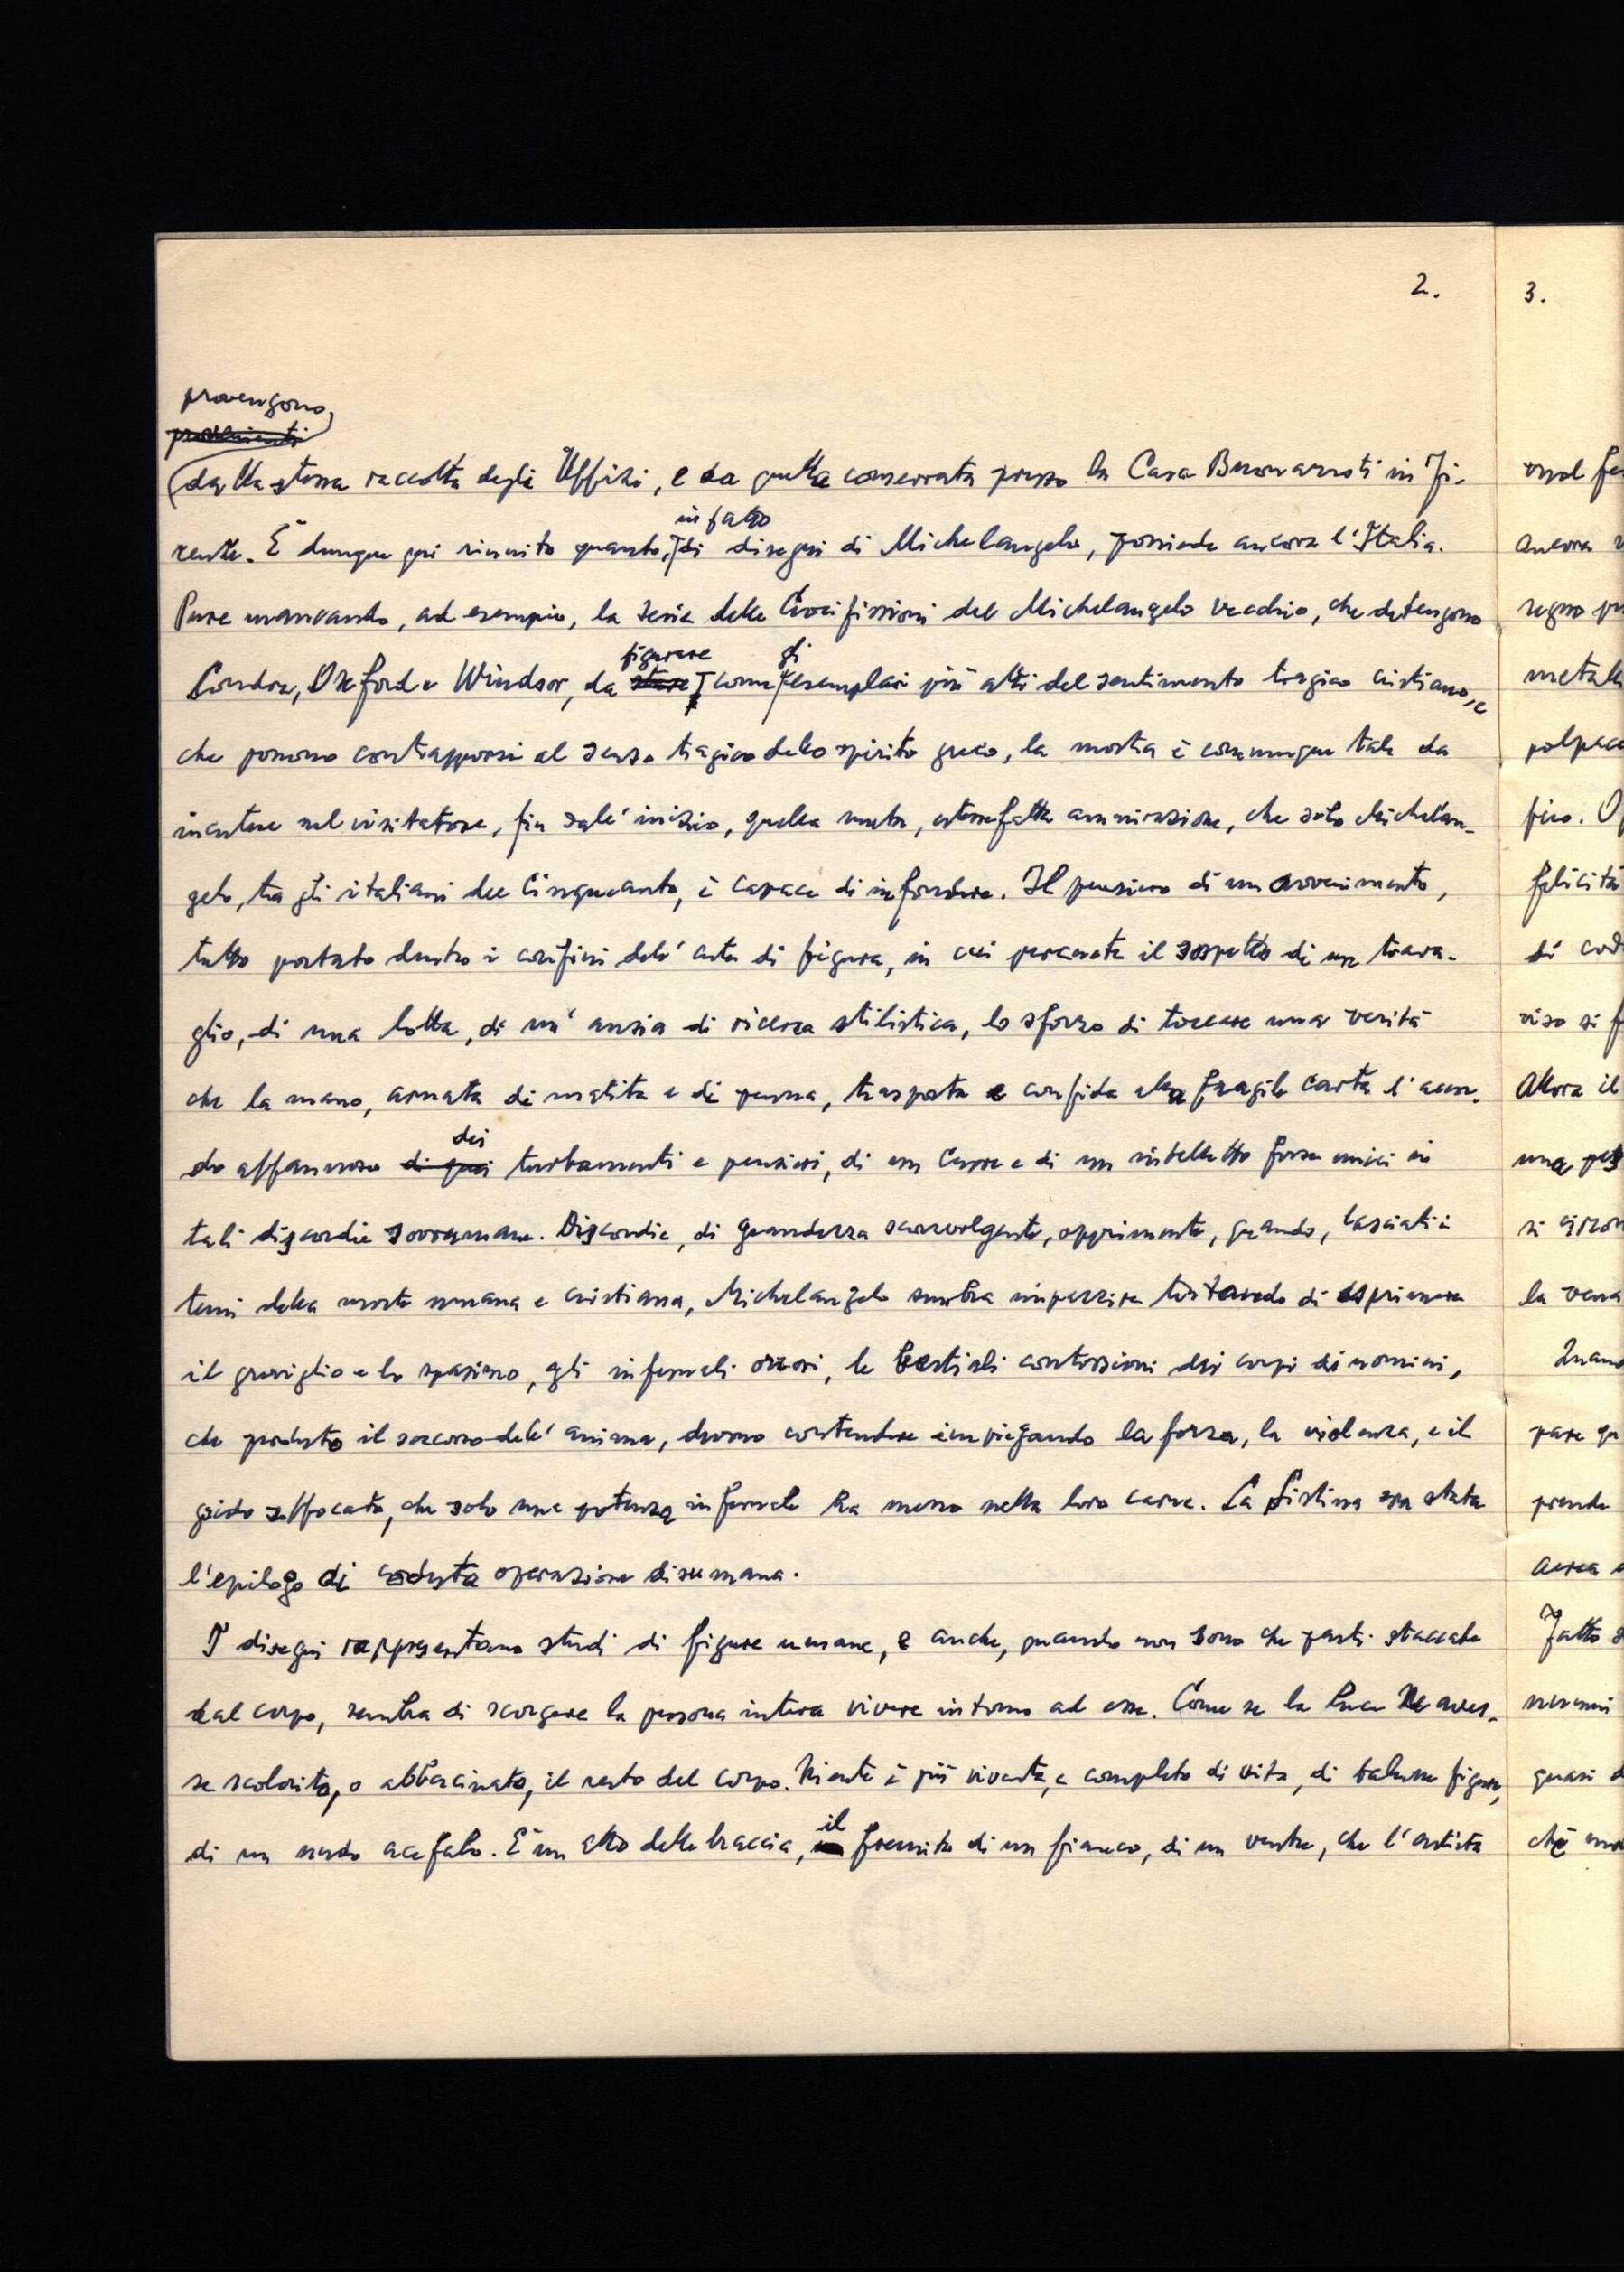 2.
provengono,
provenienti
dalla stessa raccolta degli Uffizi, e da quella conservata presso la Casa Buonarroti in Fi-
in fatto
renze. È dunque qui riunito quanto, di disegni di Michelangelo, possiede ancora l'Italia.
Pure mancando, ad esempio, la serie delle Crocifissioni del Michelangelo vecchio, che detengono
figurare gli
Londra, Oxford e Windsor, da stare come esemplari più alti del sentimento tragico cristiano, e
che possono contrapporsi al senso tragico dello spirito greco, la mostra è comunque tale da
mettere nel visitatore, fin dall'inizio, quella muta, esterrefatta ammirazione, che solo Michelan-
gelo, tra gli italiani del Cinquecento, è capace di infondere. Il pensiero di un avvenimento,
tutto portato dentro i confini dell'arte di figura, in cui percuote il sospetto di un trava-
glio, di una lotta, di un'ansia di ricerca stilistica, lo sforzo di toccare una verità
che la mano, armata di matita e di penna, trasporta e confida alla fragile carta l'accor-
dei
do affannoso di quei turbamenti e pensieri, di un cuore e di un intelletto forse unici in
tali discordie sovrumane. Discordie, di grandezza sconvolgente, opprimente, quando, lasciati i
temi della morte umana e cristiana, Michelangelo sembra impazzire tentando di esprimere
il groviglio e lo spasimo, gli infernali orrori, le bestiali contorsioni dei corpi di uomini,
che perduto il soccorso dell'anima, devono contendere impiegando la forza, la violenza, e il
grido soffocato, che solo una potenza infernale ha messo nella loro carne. La Sistina era stata
l'epilogo di codesta operazione disumana.
I disegni rappresentano studi di figure umane, e anche, quando non sono che parti staccate
dal corpo, sembra di scorgere la persona intera vivere intorno ad esse. Come se la luce ne aves-
se scolorito, o abbacinato, il resto del corpo. Niente è più vivente, e completo di vita, di talune figure,
il
di un nudo acefalo. È un atto delle braccia, un fremito di un fianco, di un ventre, che l'artista
3.
ancora
regno
metall
polpacc
fico.
felicità
di
viso si f
Allora il
una
si
la vena
pare qu
prende
aerea
Fatto
quasi d
ché